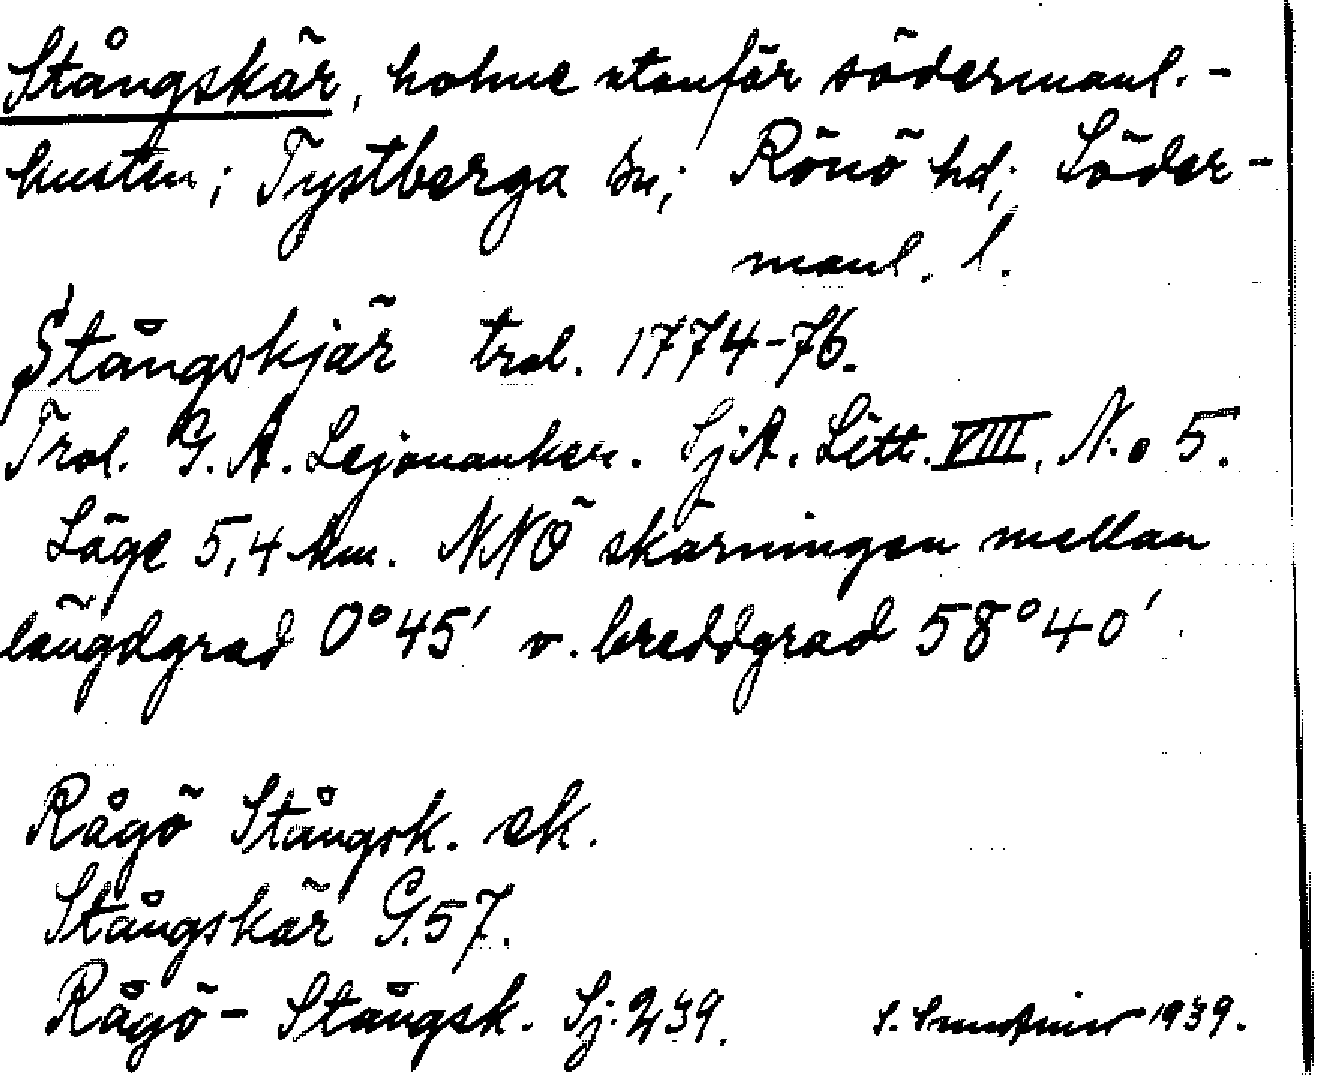 Stångskär, holme utanför södermanl.-
kusten; Tystberga sn; Rönö hd; Söder-
manl. l.
Stångskjär trol. 1774-76.
Trol. G. A. Lejonanker. SjA. Litt. VIII, N.o 5.
Läge 5,4 km. NNÖ skärningen mellan
längdgrad 0°45' o. breddgrad 58°40'
Rågö Stångsk. ek.
Stångskär G.57.
Rågö- Stångsk. Sj. 239. S. 1939.